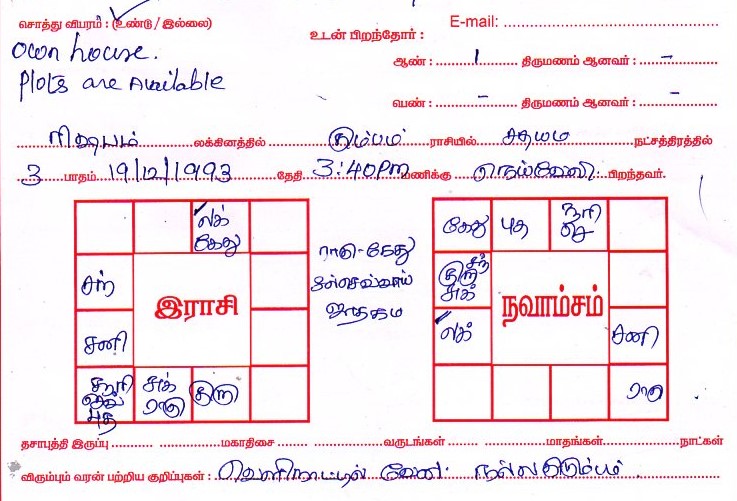 சொத்து விபரம் : (உண்டு / இல்லை)
E-mail:
own house.
Plots are Available
உடன் பிறந்தோர் :
ஆண் : 1 திருமணம் ஆனவர் : –
பெண் : – திருமணம் ஆனவர் : –
ரிஷபம் லக்கினத்தில் கும்பம் ராசியில் சதயம் நட்சத்திரத்தில்
3 பாதம் 19/12/1993 தேதி 3:40PM மணிக்கு நெய்வேலி பிறந்தவர்.
லக்
கேது
சந்
சனி
சூரி
செவ்
புத
சுக்
ராகு
குரு
இராசி
ராகு-கேது
செவ்வாய்
ஜாதகம்
கேது
புத
சூரி
செ
சந்
குரு
சுக்
லக்
சனி
ராகு
நவாம்சம்
தசாபுத்தி இருப்பு மகாதிசை வருடங்கள் மாதங்கள் நாட்கள்
விரும்பும் வரன் பற்றிய குறிப்புகள் : வெளிநாட்டில் வேலை. நல்ல குடும்பம்.